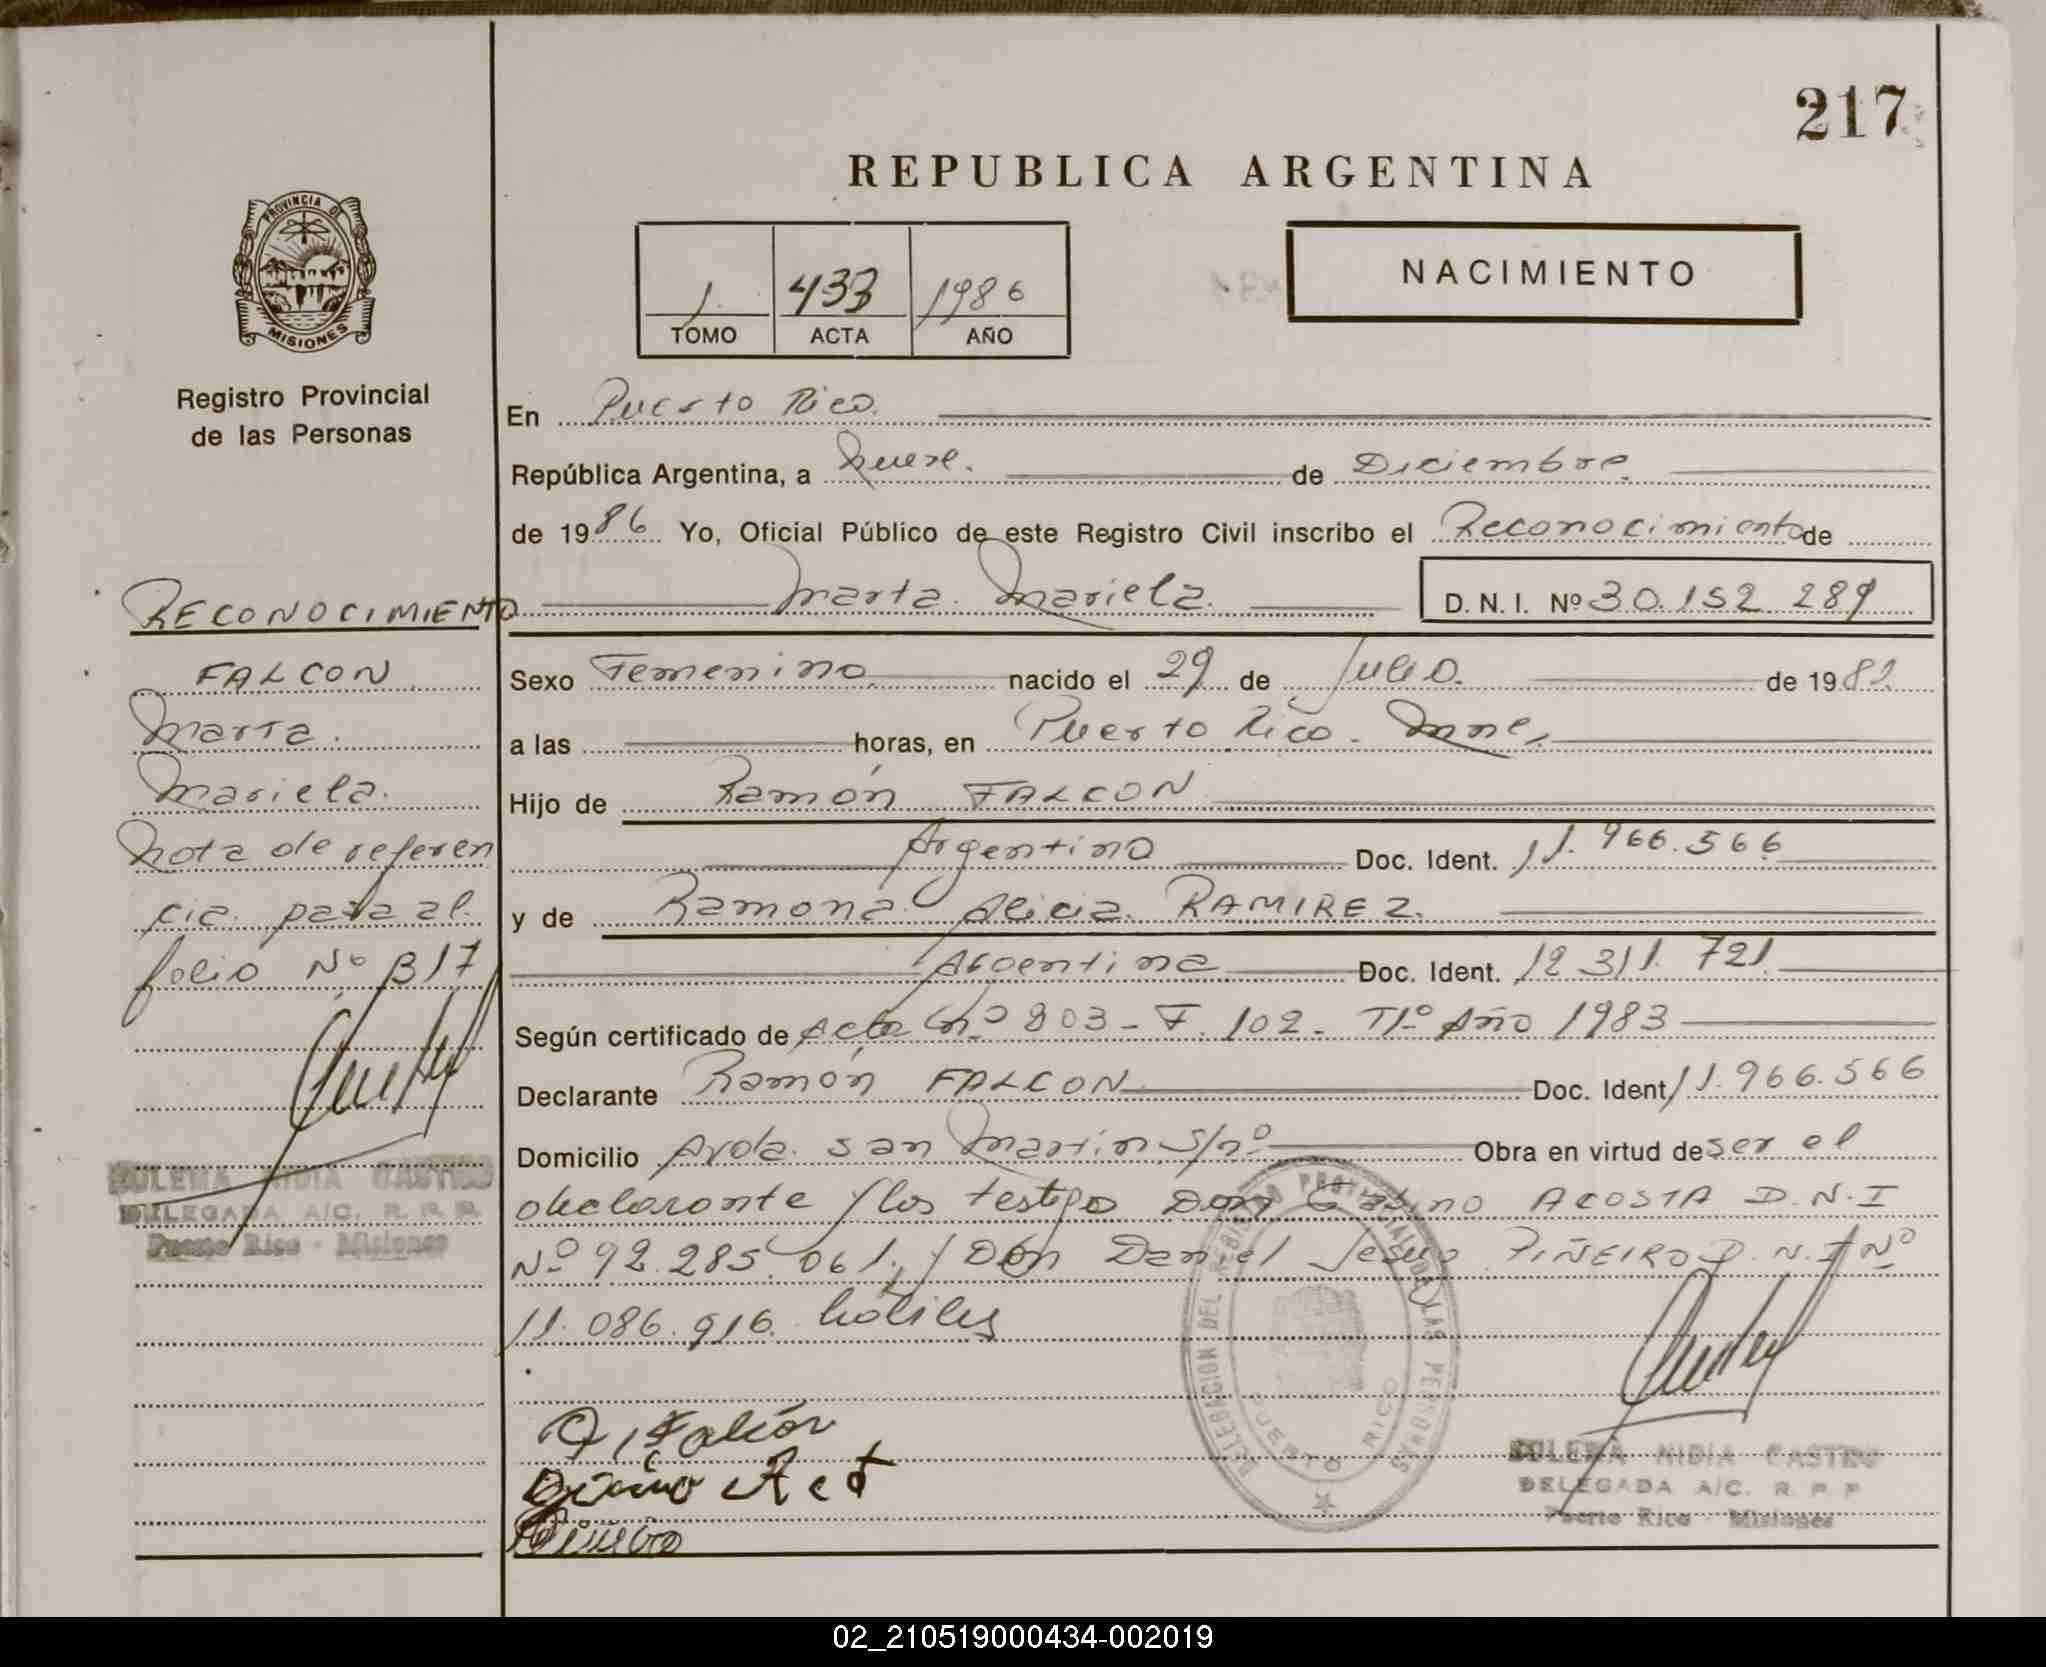 217
REPUBLICA ARGENTINA
PROVINCIA DE
MISIONES
Registro Provincial
de las Personas
1 433 1986
TOMO ACTA AÑO
NACIMIENTO
En Puerto Rico.
República Argentina, a nueve. de Diciembre.
de 1986 Yo, Oficial Público de este Registro Civil inscribo el Reconocimiento de
Marta Mariela. D. N. I. Nº 30.152.289
RECONOCIMIENTO
FALCON
Marta.
Mariela.
Nota de referen
cia. pasa al.
folio Nº 317
ZULEMA NIDIA CASTRO
DELEGADA A/C. R. P. P.
Puerto Rico - Misiones
Sexo Femenino nacido el 29 de Julio. de 1982
a las horas, en Puerto Rico. Mnes.
Hijo de Ramón FALCON
Argentino Doc. Ident. 11.966.566
y de Ramona Alicia RAMIREZ.
Argentina Doc. Ident. 12.311.721
Según certificado de Acta Nº 803 - F. 102 - Tº 1º Año 1983
Declarante Ramón FALCON Doc. Ident. 11.966.566
Domicilio Avda. San Martín S/nº Obra en virtud de ser el
declarante y los testigos Don Gabino ACOSTA D.N.I
Nº 92.285.061, y Don Daniel Jesus PIÑEIRO D.N.I Nº
11.086.916. hábiles
DELEGACION DEL REGISTRO PROVINCIAL DE LAS PERSONAS
PUERTO RICO
Falcón
ZULEMA NIDIA CASTRO
DELEGADA A/C. R. P. P
Puerto Rico - Misiones
02_210519000434-002019